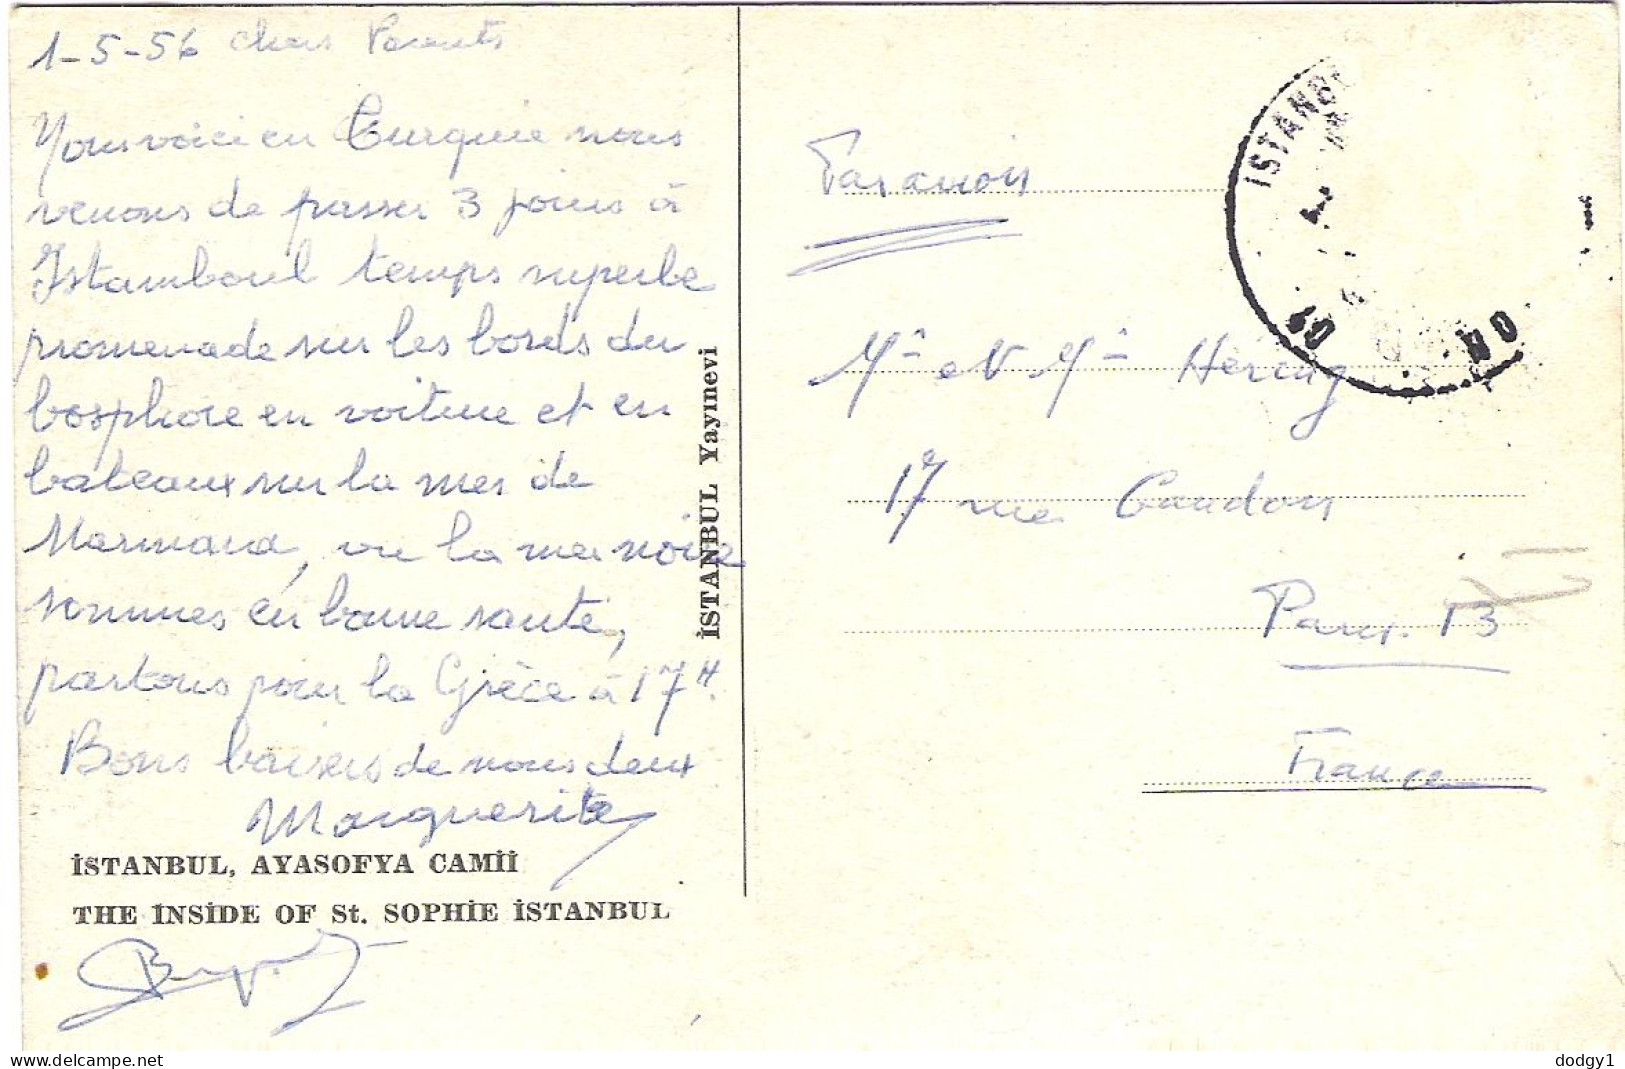 1-5-56 Chers Parents
Nous voici en Turquie nous
venons de passer 3 jours à
Istamboul temps superbe
promenade sur les bords du
bosphore en voiture et en
bateaux sur la mer de
Marmara, vu la mer noire
sommes en bonne santé,
partons pour la Grèce à 17H.
Bons baisers de nous deux
Marguerite
İSTANBUL, AYASOFYA CAMİİ
THE İNSİDE OF St. SOPHİE İSTANBUL
İSTANBUL Yayınevi
Par avion
Mr et Mme
17 rue Gandon
Paris. 13
France
İSTANB
delcampe.net
dodgy1